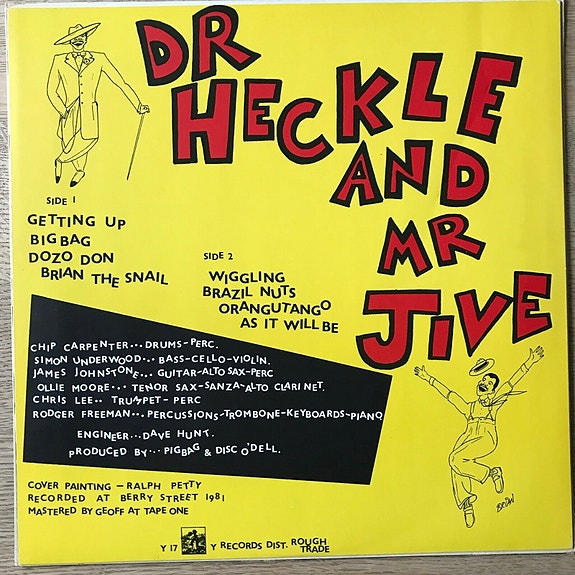 DR
HECKLE
AND
MR
JIVE
SIDE 1
GETTING UP
BIG BAG
DOZO DON
BRIAN THE SNAIL
SIDE 2
WIGGLING
BRAZIL NUTS
ORANGUTANGO
AS IT WILL BE
CHIP CARPENTER... DRUMS-PERC.
SIMON UNDERWOOD... BASS-CELLO-VIOLIN.
JAMES JOHNSTONE... GUITAR-ALTO SAX-PERC
OLLIE MOORE... TENOR SAX-SANZA-ALTO CLARINET.
CHRIS LEE.. TRUMPET-PERC
RODGER FREEMAN... PERCUSSIONS-TROMBONE-KEYBOARDS-PIANO
ENGINEER... DAVE HUNT.
PRODUCED BY... PIGBAG & DISC O'DELL.
COVER PAINTING - RALPH PETTY
RECORDED AT BERRY STREET 1981
MASTERED BY GEOFF AT TAPE ONE
Y 17 Y RECORDS DIST. ROUGH TRADE
BRIAN